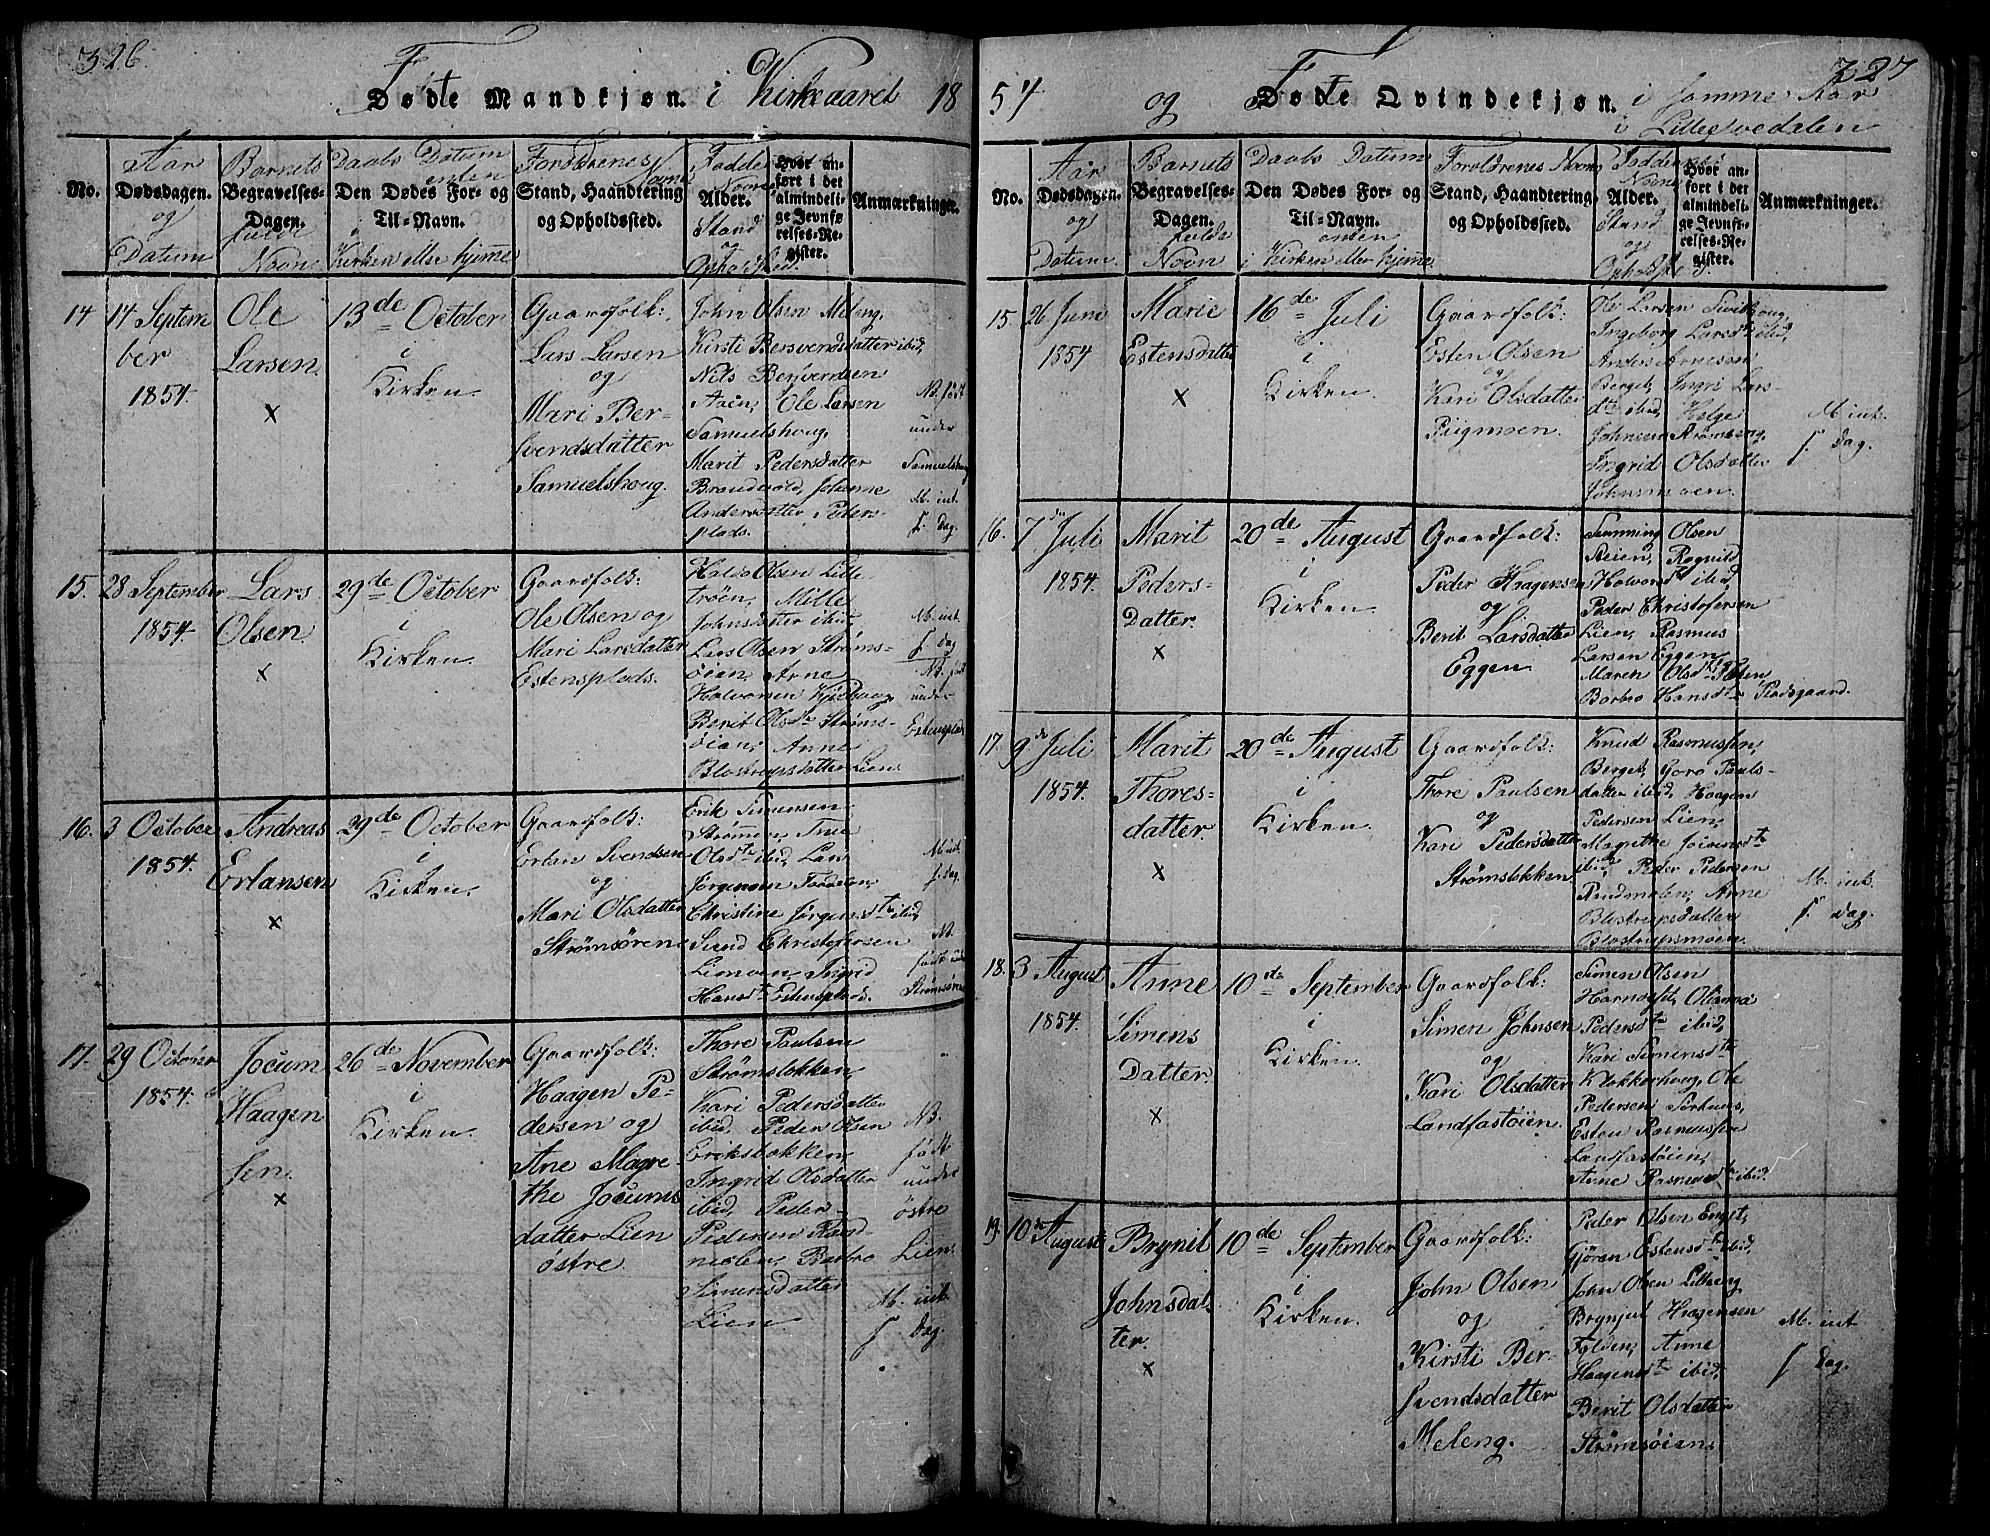 326.
Fødte Mandkjøn. i Kirkeaaret 18
No.
Aar
Dødsdagen.
og
Datum
Barnets
Begravelses-
Dagen.
fulde
Navn
Daabs Datum
enten
Den Dødes For- og
Til-Navn.
i
Kirken eller hjemme
Forældrenes Navne
Stand, Haandtering
og Opholdssted.
Faddernes
Navne
Alder.
Stand
og
Opholdsted.
Hvor an-
ført i det
almindeli-
ge Jevnfø-
relses-Re-
gister.
Anmærkninger.
14
14 Septem
ber
1854.
Ole
Larsen
×
13de October
i
Kirken.
Gaardfolk:
Lars Larsen
og
Mari Ber-
svendsdatter
Samuelshoug.
John Olsen Meleng,
Kirsti Bersvendsdatter ibid,
Nils Bersvendsen
Aaen, Ole Larsen
Samuelshoug,
Marit Pedersdatter
Brandvold, Johanne
Andersdatter Peders-
plads.
NB. født
under
Samuelshoug
M. int.
f. Dag.
15.
28 September
1854.
Lars
Olsen
×
29de October
i
Kirken.
Gaardfolk:
Ole Olsen og
Mari Larsdatter
Estensplads.
Halvor Olsen Lille-
trøen, Mille
Johnsdatter ibid,
Lars Olsen Strøms-
øien, Arne
Halvorsen Kjølhoug
Berit Olsdtr Strøms-
øien, Anne
Blostrupsdatter Lien.
M. int.
f. Dag
NB. født
under
Estensplads
16.
3 October
1854.
Andreas
Erlansen
×
29de October
i
Kirken.
Gaardfolk:
Erlan Svendsen
og
Mari Olsdatter
Strømsøren
Erik Simensen
Strømen, True
Olsdtr ibid, Lars
Jørgensen
Christine Jørgensdtr ibid,
Svend Christofersen
Liemoen, Ingrid
Hansdtr Estensplads.
M. int.
f. Dag.
NB.
født under
Strømsøren
17.
29 October
1854.
Jocum
Haagen
sen.
×
26de November
i
Kirken.
Gaardfolk:
Haagen Pe-
dersen og
Ane Magre-
the Jocums
datter Lien
østre.
Thore Paulsen
Strømsløkken,
Kari Pedersdatter
ibid, Peder Olsen
Eriksløkken,
Ingrid Olsdatter
ibid, Peder
Pedersen Rand-
mælen, Barbro
Simensdatter
Lien
NB.
født
under
østre
Lien.
M. int.
f. Dag.
54 og Fødte Qvindekjøn. i samme Aar
i Lilleelvedalen
327
No.
Aar
Dødsdagen.
og
Datum
Barnets
Begravelses-
Dagen.
fulde
Navn
Daabs Datum
Den Dødes For- og
Til-Navn.
enten
i Kirken eller hjemme.
Forældrenes Navne
Stand, Haandtering
og Opholdssted.
Faddernes
Navne
Alder.
Stand
og
Opholdsted.
Hvor an-
ført i det
almindeli-
ge Jevnfø-
relses-Re-
gister.
Anmærkninger.
15.
26 Juni
1854
Marie
Estensdatter
×
16de Juli
i
Kirken.
Gaardfolk:
Esten Olsen
og
Kari Olsdatter
Rugmoen.
Ole Larsen Sivilhoug,
Ingeborg Larsdtr ibid,
Anders Arnesen
Berget, Ingri Lars-
dtr ibid, Helge
Johnsen Strømseng,
Ingrid Olsdatter
Johnsmoen.
M. int.
f. Dag.
16.
7de Juli
1854.
Marit
Peders-
Datter.
×
20de August
i
Kirken.
Gaardfolk:
Peder Haagensen
og
Berit Larsdatter
Eggen
Simming Olsen
Steien, Ragnild
Halvorsdtr ibid,
Peder Christofersen
Lien, Rasmus
Larsen Eggen
Maren Olsdtr Steien
Barbro Hansdtr Pladsgaard.
17.
9de Juli
1854.
Marit
Thores-
datter
×
20de August
i
Kirken.
Gaardfolk:
Thore Paulsen
og
Kari Pedersdatter
Strømsløkken
Knud Rasmussen,
Berget, Goro Pauls-
datter ibid, Haagen
Pedersen Lien,
Magrethe Jocumsdtr
ibid, Peder Pedersen
Randmælen, Anne
Blostrupsdatter
Blostrupsmoen.
M. int.
f. Dag.
18.
3 August
1854.
Anne
Simens
Datter.
×
10de September
i
Kirken.
Gaardfolk:
Simen Johnsen
og
Kari Olsdatter
Landfastøien.
Simen Olsen
Hornseth, Olianna
Pedersdtr ibid,
Kari Simensdtr
Klokkerhoug, Ole
Pedersen Sørhuus,
Esten Rasmussen
Landfastøien,
Anne Rasmusdtr ibid.
19.
10de August
Brynil
Johnsdat-
ter.
×
10de September
i
Kirken.
Gaardfolk:
John Olsen
og
Kirsti Ber-
svendsdatter
Meleng.
Peder Olsen Enget,
Gjøran Estensdtr ibid,
John Olsen Lilleeng
Brynjul Haagensen
Folden, Anne
Haagensdtr ibid,
Berit Olsdatter
Strømsøien.
M. int
f. Dag.